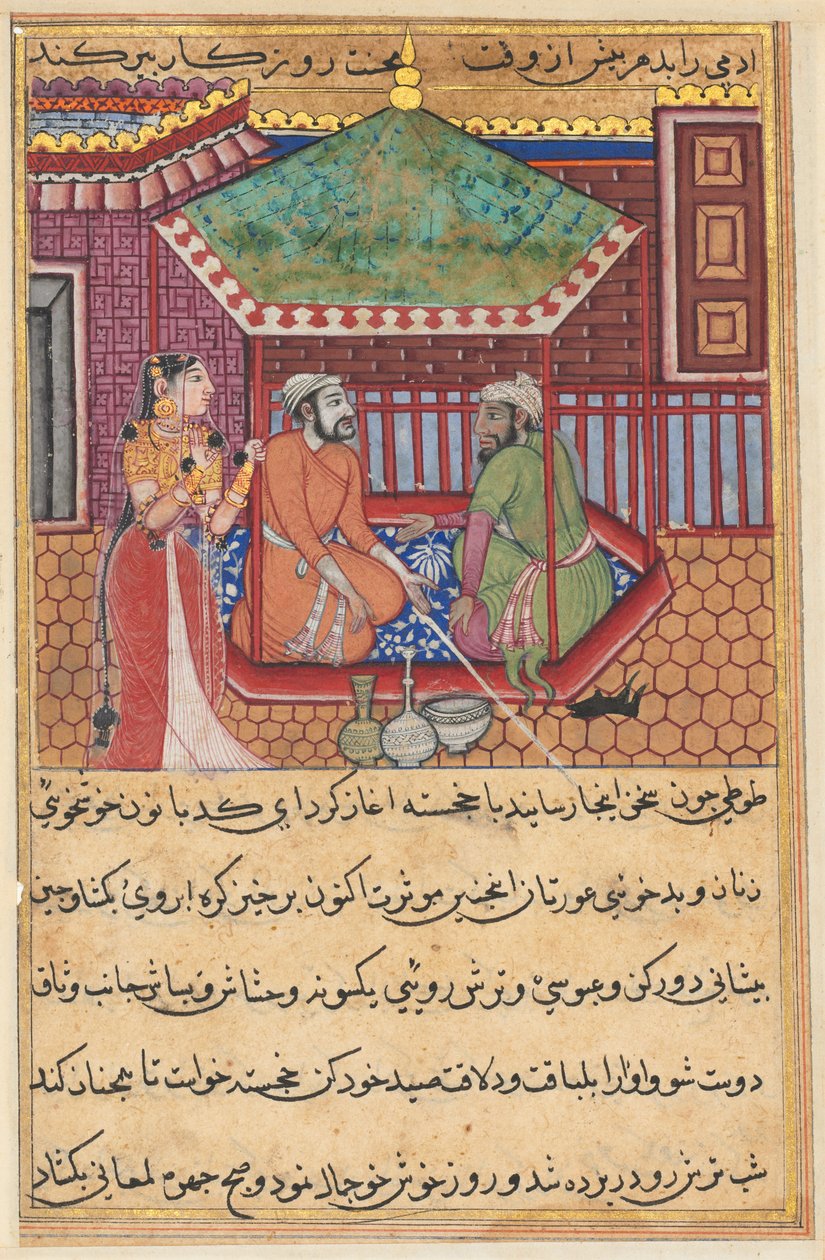 ادمي را بدهر پیش از وقت محنت روزکار پیر کند
طوطي جون سخن اینجا رسانید با خجسته اغاز کرد اي کدبانو خوشخوئي
زنان و بدخوئي عورتان اینجنین موثرست اکنون برخیز کره ابروي بکشا و جین
بیشاني دور کن و عبوسي و ترش روئي یکسو نه و حشاش و بشاش جانب وثاق
دوست شو و اورا بلباقت و دلاقت صید خود کن خجسته خواست تا همجنان کند
شب ترش رو در برده شد و روز خوش خو جمال نمود و صبح جهره لمعاني بکشاد